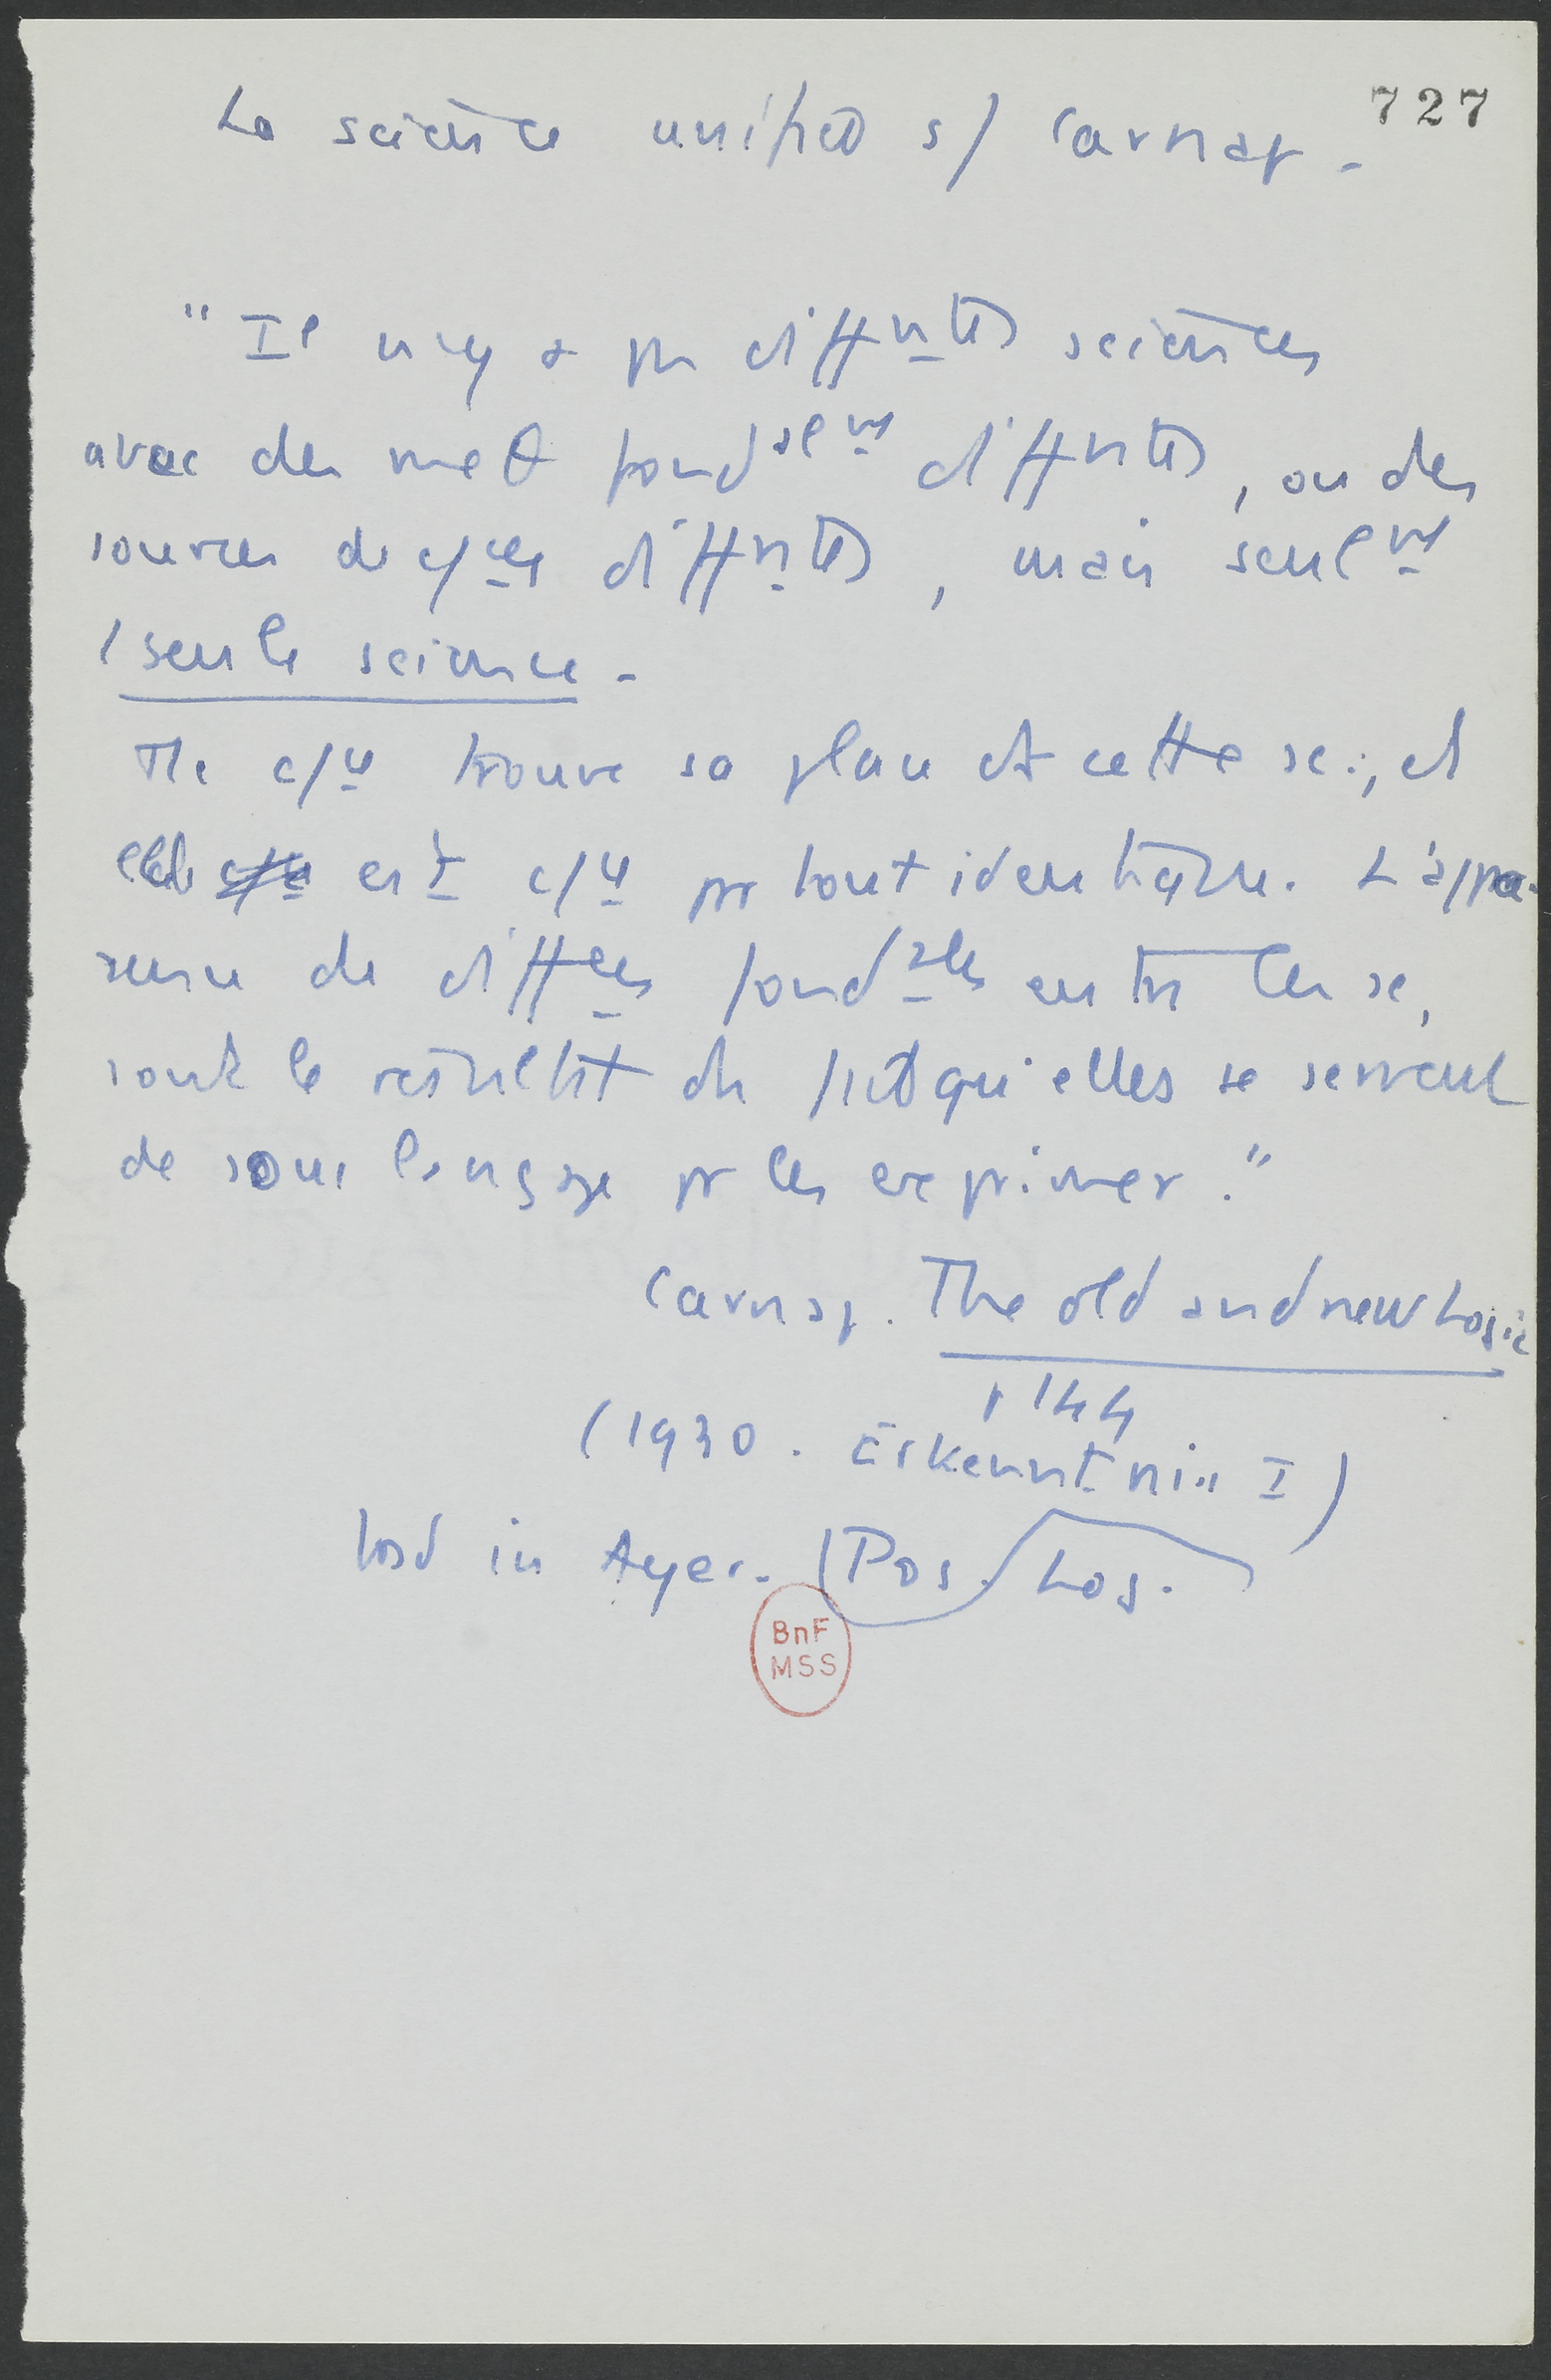 727
La science unifiée s/ Carnap -
"Il n'y a pas diffntes sciences
avec des meθ fondalemt diffntes, ou des
sources de c/ces diffntes, mais seulemt
1 seule science -
Tte c/ce trouve sa place ds cette sc., et
elle est c/ce par tout identique. L'appa-
rence de diffces fondales entre les sc,
sont le résultat du fait qu'elles se servent
de sous langage pr les exprimer."
Carnap. The old and new Logic
p 144
(1930. Erkenntniss I)
trad in Ayer. (Pos. Log.
BnF
MSS